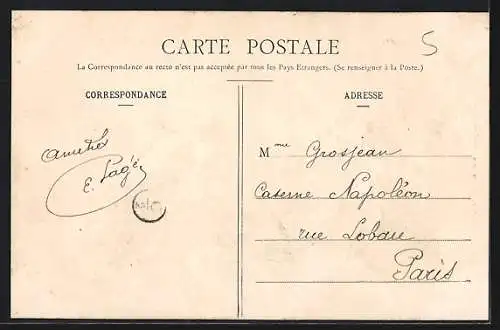 CARTE POSTALE
5
La Correspondance au recto n'est pas acceptée par tous les Pays Etrangers. (Se renseigner à la Poste.)
CORRESPONDANCE
ADRESSE
Amitiés
E. Pagè
Mme Grosjean
Caserne Napoléon
rue Lobau
Paris